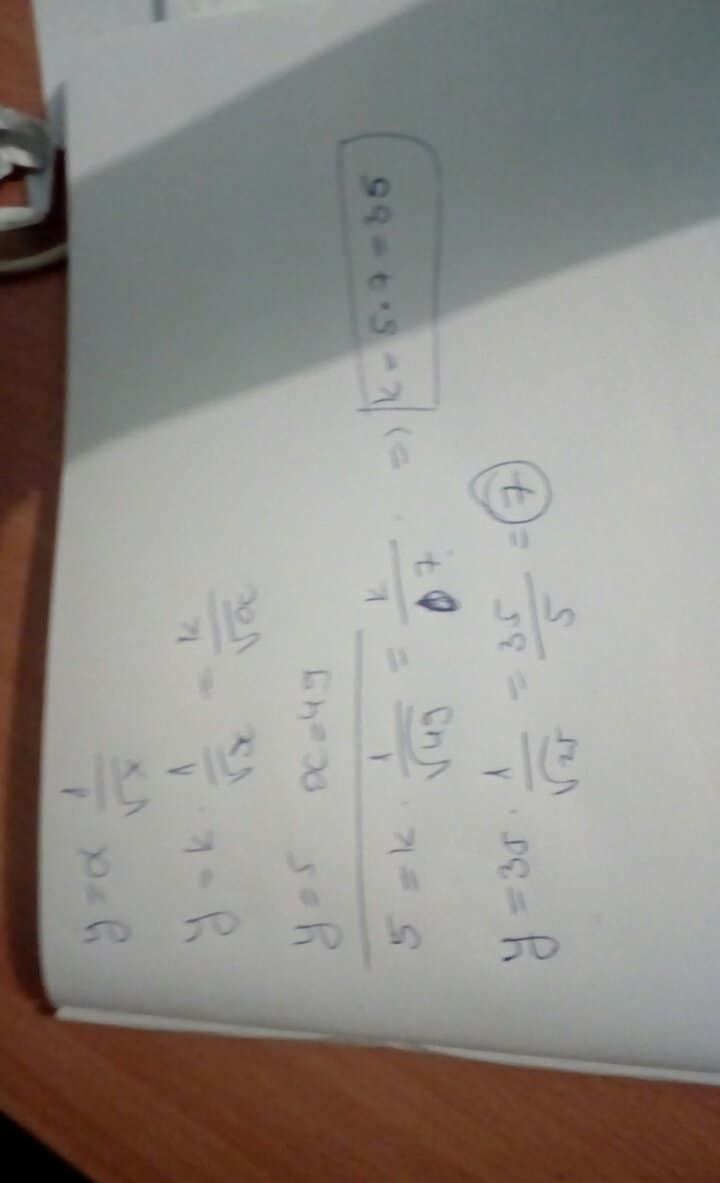 y = α 1/√x
y = k · 1/√x = k/√x
y = 5 x = 49
5 = k · 1/√49 = k/7 ⇒ k = 5 · 7 = 35
y = 35 · 1/√25 = 35/5 = 7